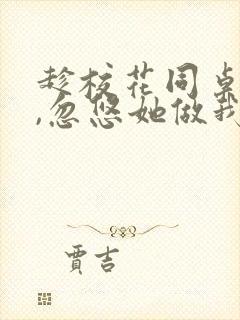 趁校花同桌
,忽悠她做我
贾吉